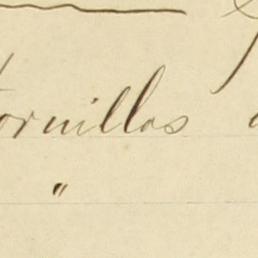 tornillos
"